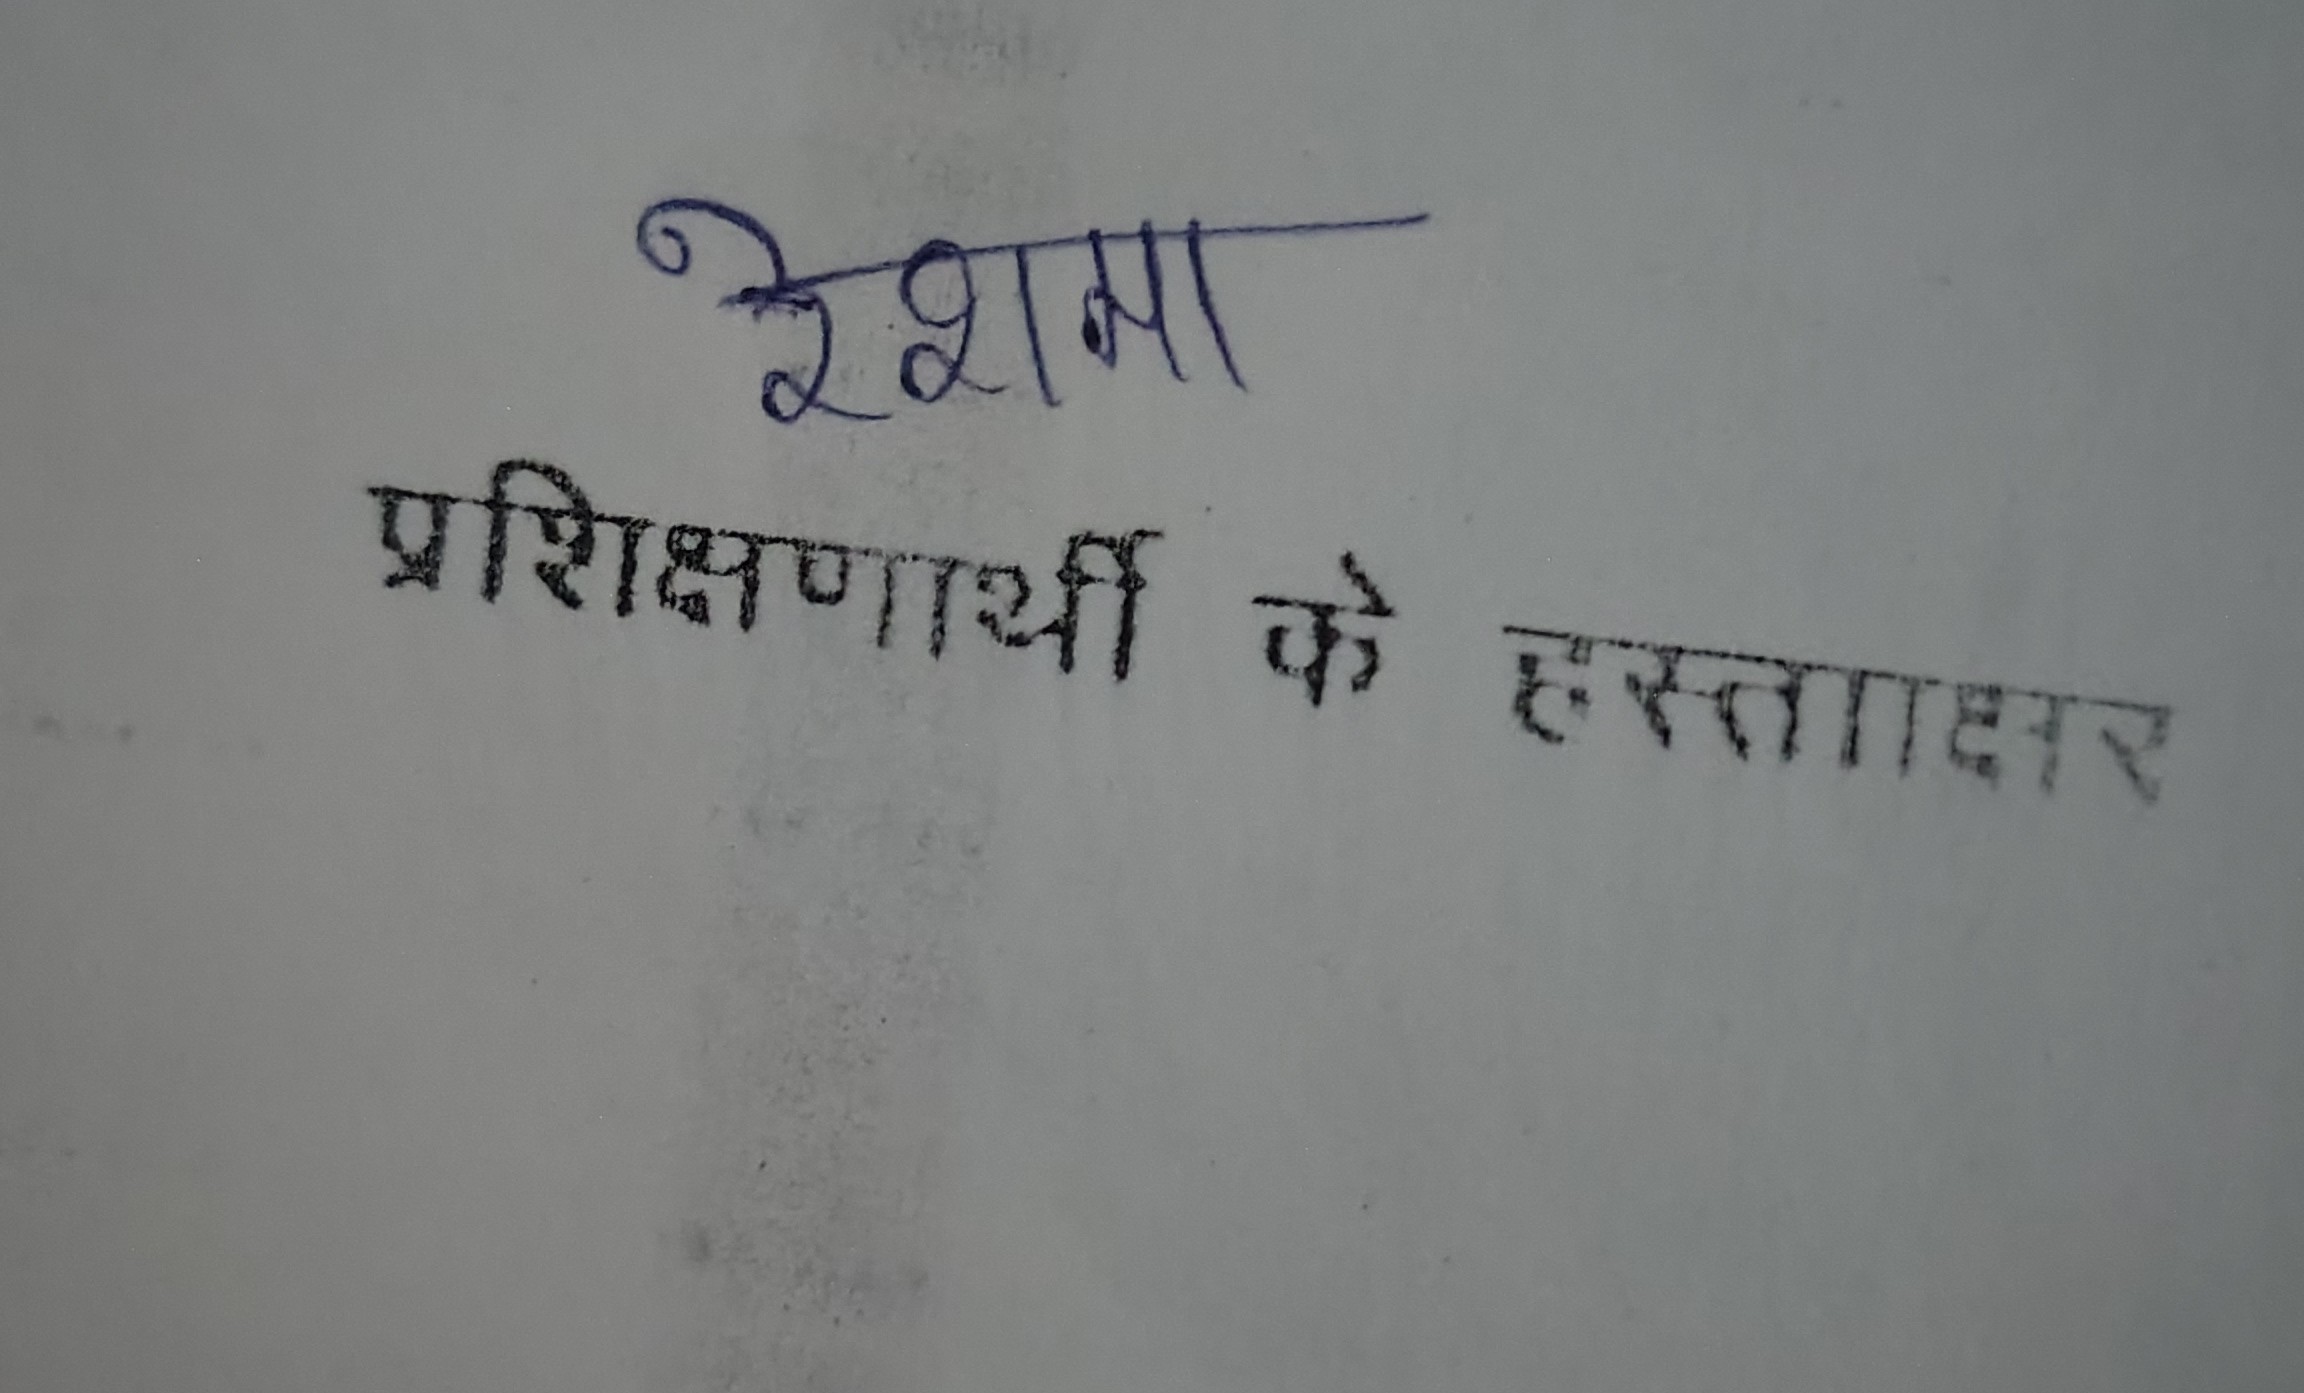 रेशमा
प्रशिक्षणार्थी के हस्तााक्षर